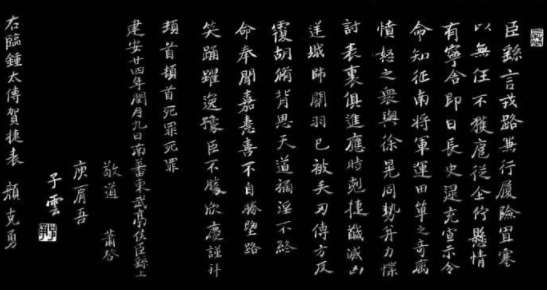 臣繇言戎路兼行履險冒寒
以無任不獲扈從企佇懸情
有寧舍即日長史逯充宣示令
命知征南將軍運田單之奇厲
憤怒之眾與徐晃同勢并力撲
討表裏俱進應時剋捷馘滅凶
逆賊帥關羽已被矢刃傅方反
覆胡脩背恩天道禍淫不終
命奉聞嘉憙喜不自勝望路
笑踊躍逸豫臣不勝欣慶謹拜
頓首頓首死罪死罪
建安廿四年閏月九日南蕃東武亭侯臣繇上
敬道 蕭
庾肩吾
子雲
右臨鍾太傅賀捷表 顏克勇